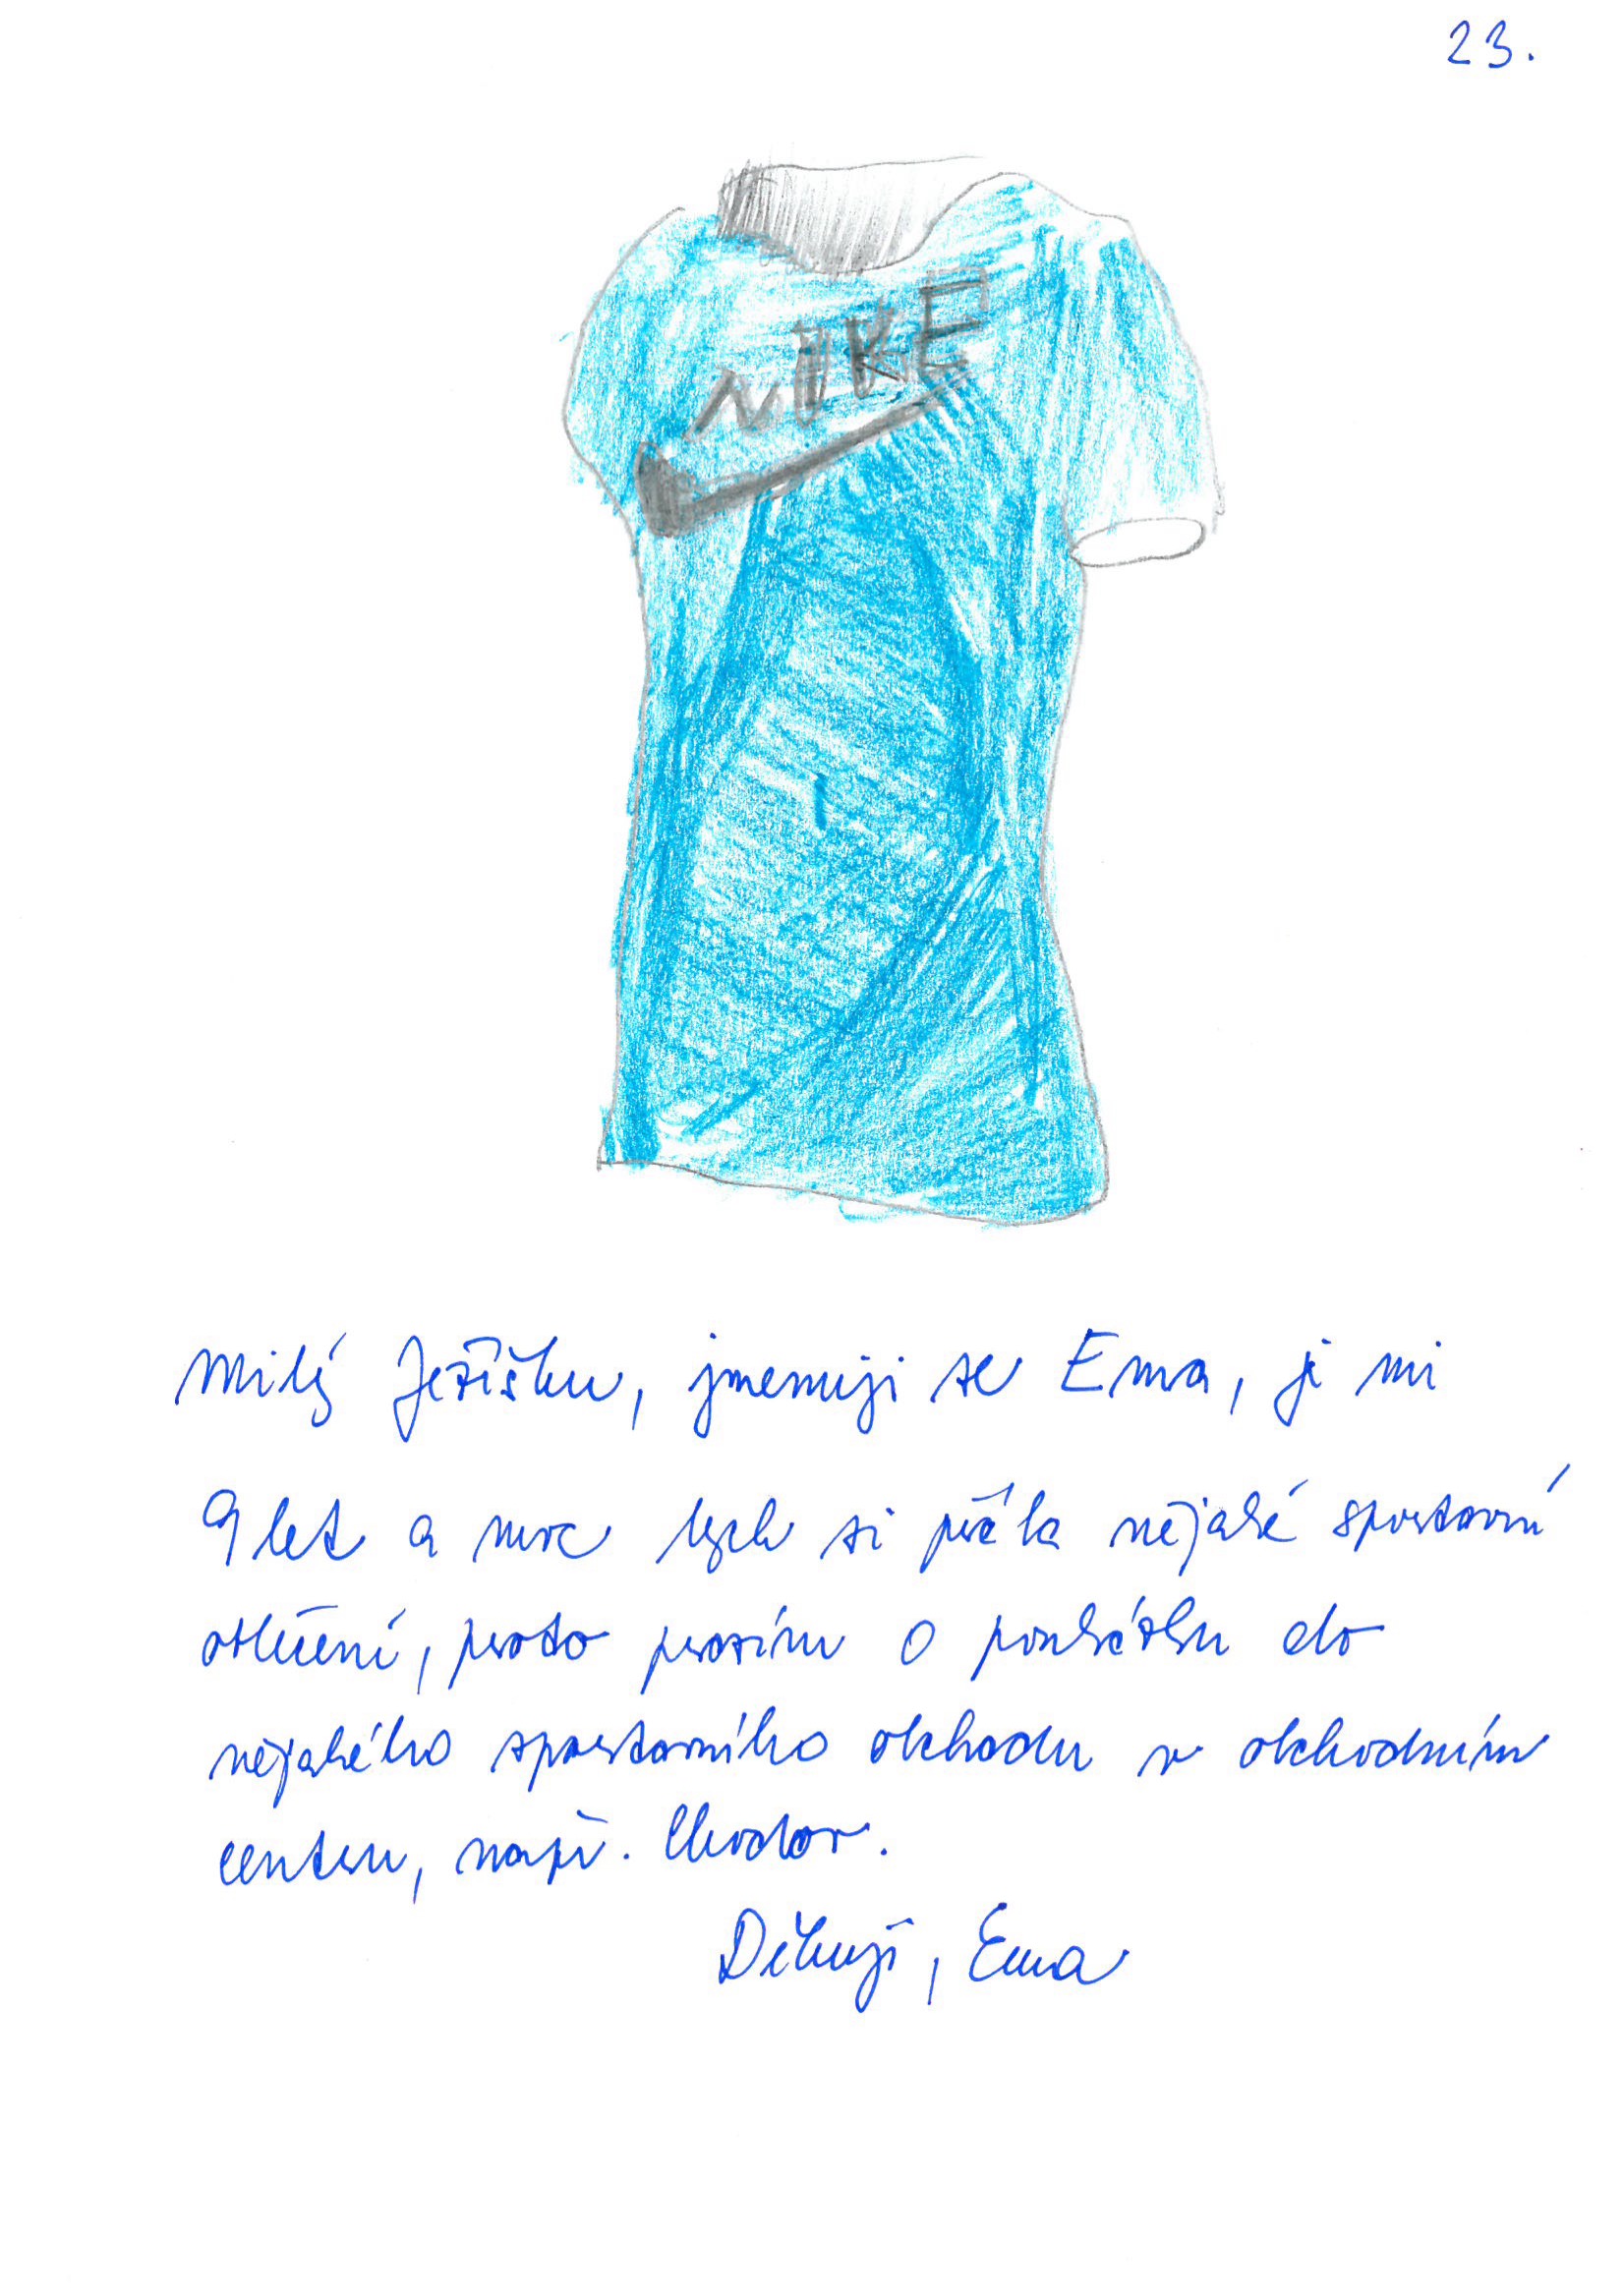 23.
NIKE
Milý Ježíšku, jmenuji se Ema, je mi
9 let a moc bych si přála nějaké sportovní
oblečení, proto prosím o poukázku do
nějakého sportovního obchodu v obchodním
centru, např. Chodov.
Děkuji, Ema